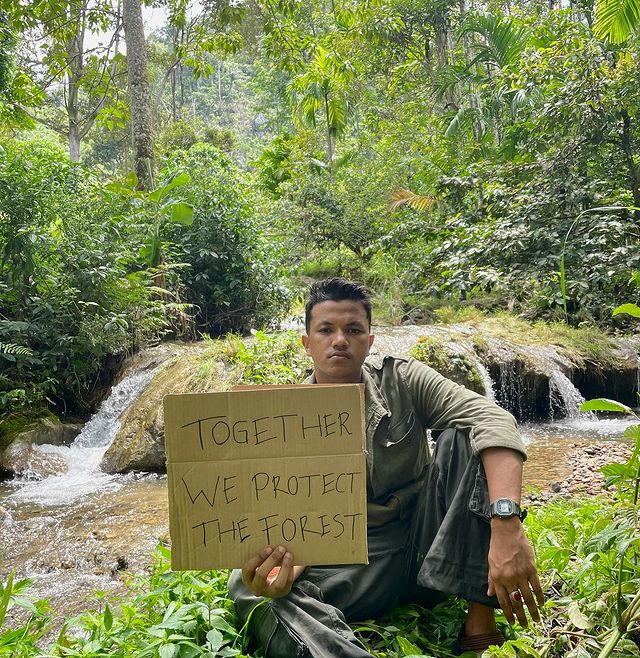 TOGETHER
WE PROTECT
THE FOREST